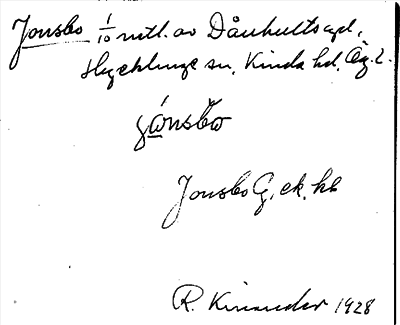 Jonsbo 1/10 mtl. av Dånhultsägd,
Hycklinge sn, Kinda hd, Ög. l.
jonsbo
Jonsbo G, ek. kb
R. Kinander 1928